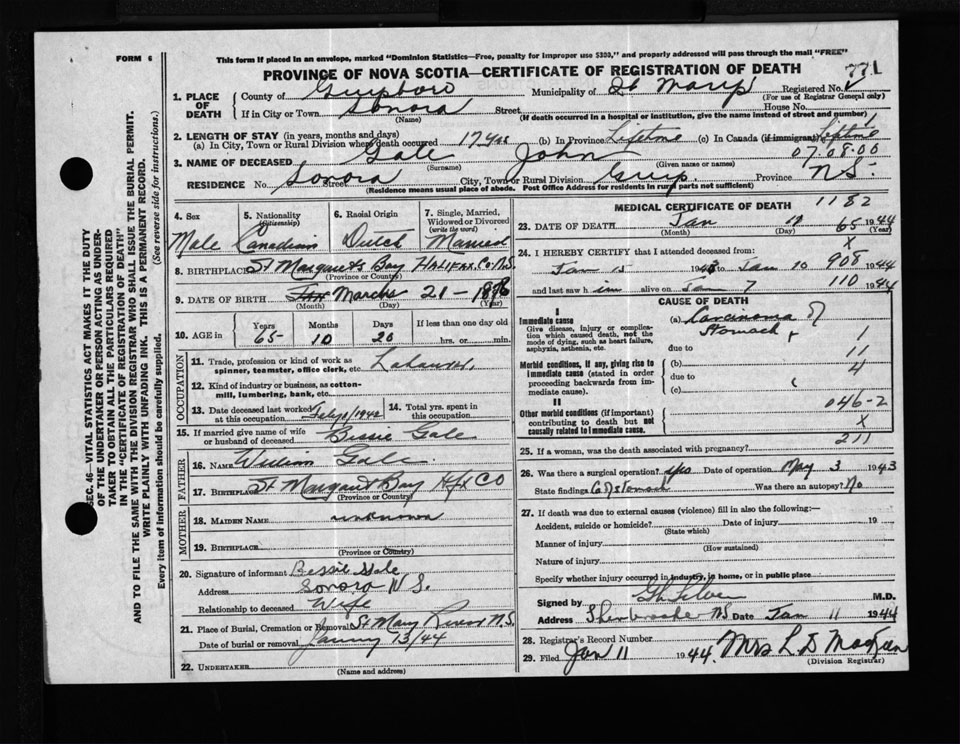 FORM 6
This form if placed in an envelope, marked "Dominion Statistics—Free, penalty for improper use $300," and properly addressed will pass through the mail "FREE"
PROVINCE OF NOVA SCOTIA—CERTIFICATE OF REGISTRATION OF DEATH
771
1. PLACE OF DEATH
County of Guysboro Municipality of St Marys Registered No.
(For use of Registrar General only)
If in City or Town Sonora Street House No.
(Name) (If death occurred in a hospital or institution, give the name instead of street and number)
2. LENGTH OF STAY (in years, months and days)
(a) In City, Town or Rural Division where death occurred 17 yrs (b) In Province Lifetime (c) In Canada (if immigrant) Lifetime
3. NAME OF DECEASED Gale John 07.08.00
(Surname) (Given name or names)
RESIDENCE No. Sonora Street City, Town or Rural Division Guys. Province N.S.
(Residence means usual place of abode. Post Office Address for residents in rural parts not sufficient)
4. Sex Male
5. Nationality (Citizenship) Canadian
6. Racial Origin Dutch
7. Single, Married, Widowed or Divorced (write the word) Married
8. BIRTHPLACE St Margarets Bay Halifax Co N.S.
(Province or Country)
9. DATE OF BIRTH March 21 - 1878
(Month) (Day) (Year)
10. AGE in Years 65 Months 10 Days 20 If less than one day old hrs. or min.
OCCUPATION
11. Trade, profession or kind of work as spinner, teamster, office clerk, etc.
12. Kind of industry or business, as cotton-mill, lumbering, bank, etc.
13. Date deceased last worked at this occupation 1942
14. Total yrs. spent in this occupation
15. If married give name of wife or husband of deceased Bessie Gale
FATHER
16. NAME William Gale
17. BIRTHPLACE St Margaret Bay Hfx CO
(Province or Country)
MOTHER
18. MAIDEN NAME unknown
19. BIRTHPLACE
(Province or Country)
20. Signature of informant Bessie Gale
Address Sonora N S.
Relationship to deceased Wife
21. Place of Burial, Cremation or Removal St Mary River N.S.
Date of burial or removal 13/44
22. UNDERTAKER
(Name and address)
MEDICAL CERTIFICATE OF DEATH 1182
23. DATE OF DEATH Jan 65 1944
(Month) (Day) (Year)
X
24. I HEREBY CERTIFY that I attended deceased from: 908
Jan 15 to Jan 10 1944
and last saw h im alive on Jan 7 110 1944
CAUSE OF DEATH
I
Immediate cause
Give disease, injury or complication which caused death, not the mode of dying, such as heart failure, asphyxia, asthenia, etc.
(a) Carcinoma
Stomach 1
due to 11
Morbid conditions, if any, giving rise to immediate cause (stated in order proceeding backwards from immediate cause).
(b) 4
due to
(c)
II
Other morbid conditions (if important) contributing to death but not causally related to immediate cause.
046-2
X
211
25. If a woman, was the death associated with pregnancy?
26. Was there a surgical operation? yes Date of operation May 3 1943
State findings Ca of stomach Was there an autopsy? No
27. If death was due to external causes (violence) fill in also the following:—
Accident, suicide or homicide? Date of injury 19
(State which)
Manner of injury
(How sustained)
Nature of injury
Specify whether injury occurred in industry, in home, or in public place
Signed by M.D.
Address Sherbrooke NS Date Jan 11 1944
28. Registrar's Record Number
29. Filed Jan 11 1944. Mrs L D
(Division Registrar)
SEC. 46—VITAL STATISTICS ACT MAKES IT THE DUTY
OF THE UNDERTAKER OR PERSON ACTING AS UNDER-
TAKER TO OBTAIN ALL THE PARTICULARS REQUIRED
IN THE "CERTIFICATE OF REGISTRATION OF DEATH"
AND TO FILE THE SAME WITH THE DIVISION REGISTRAR WHO SHALL ISSUE THE BURIAL PERMIT.
WRITE PLAINLY WITH UNFADING INK. THIS IS A PERMANENT RECORD.
Every item of Information should be carefully supplied. (See reverse side for instructions.)